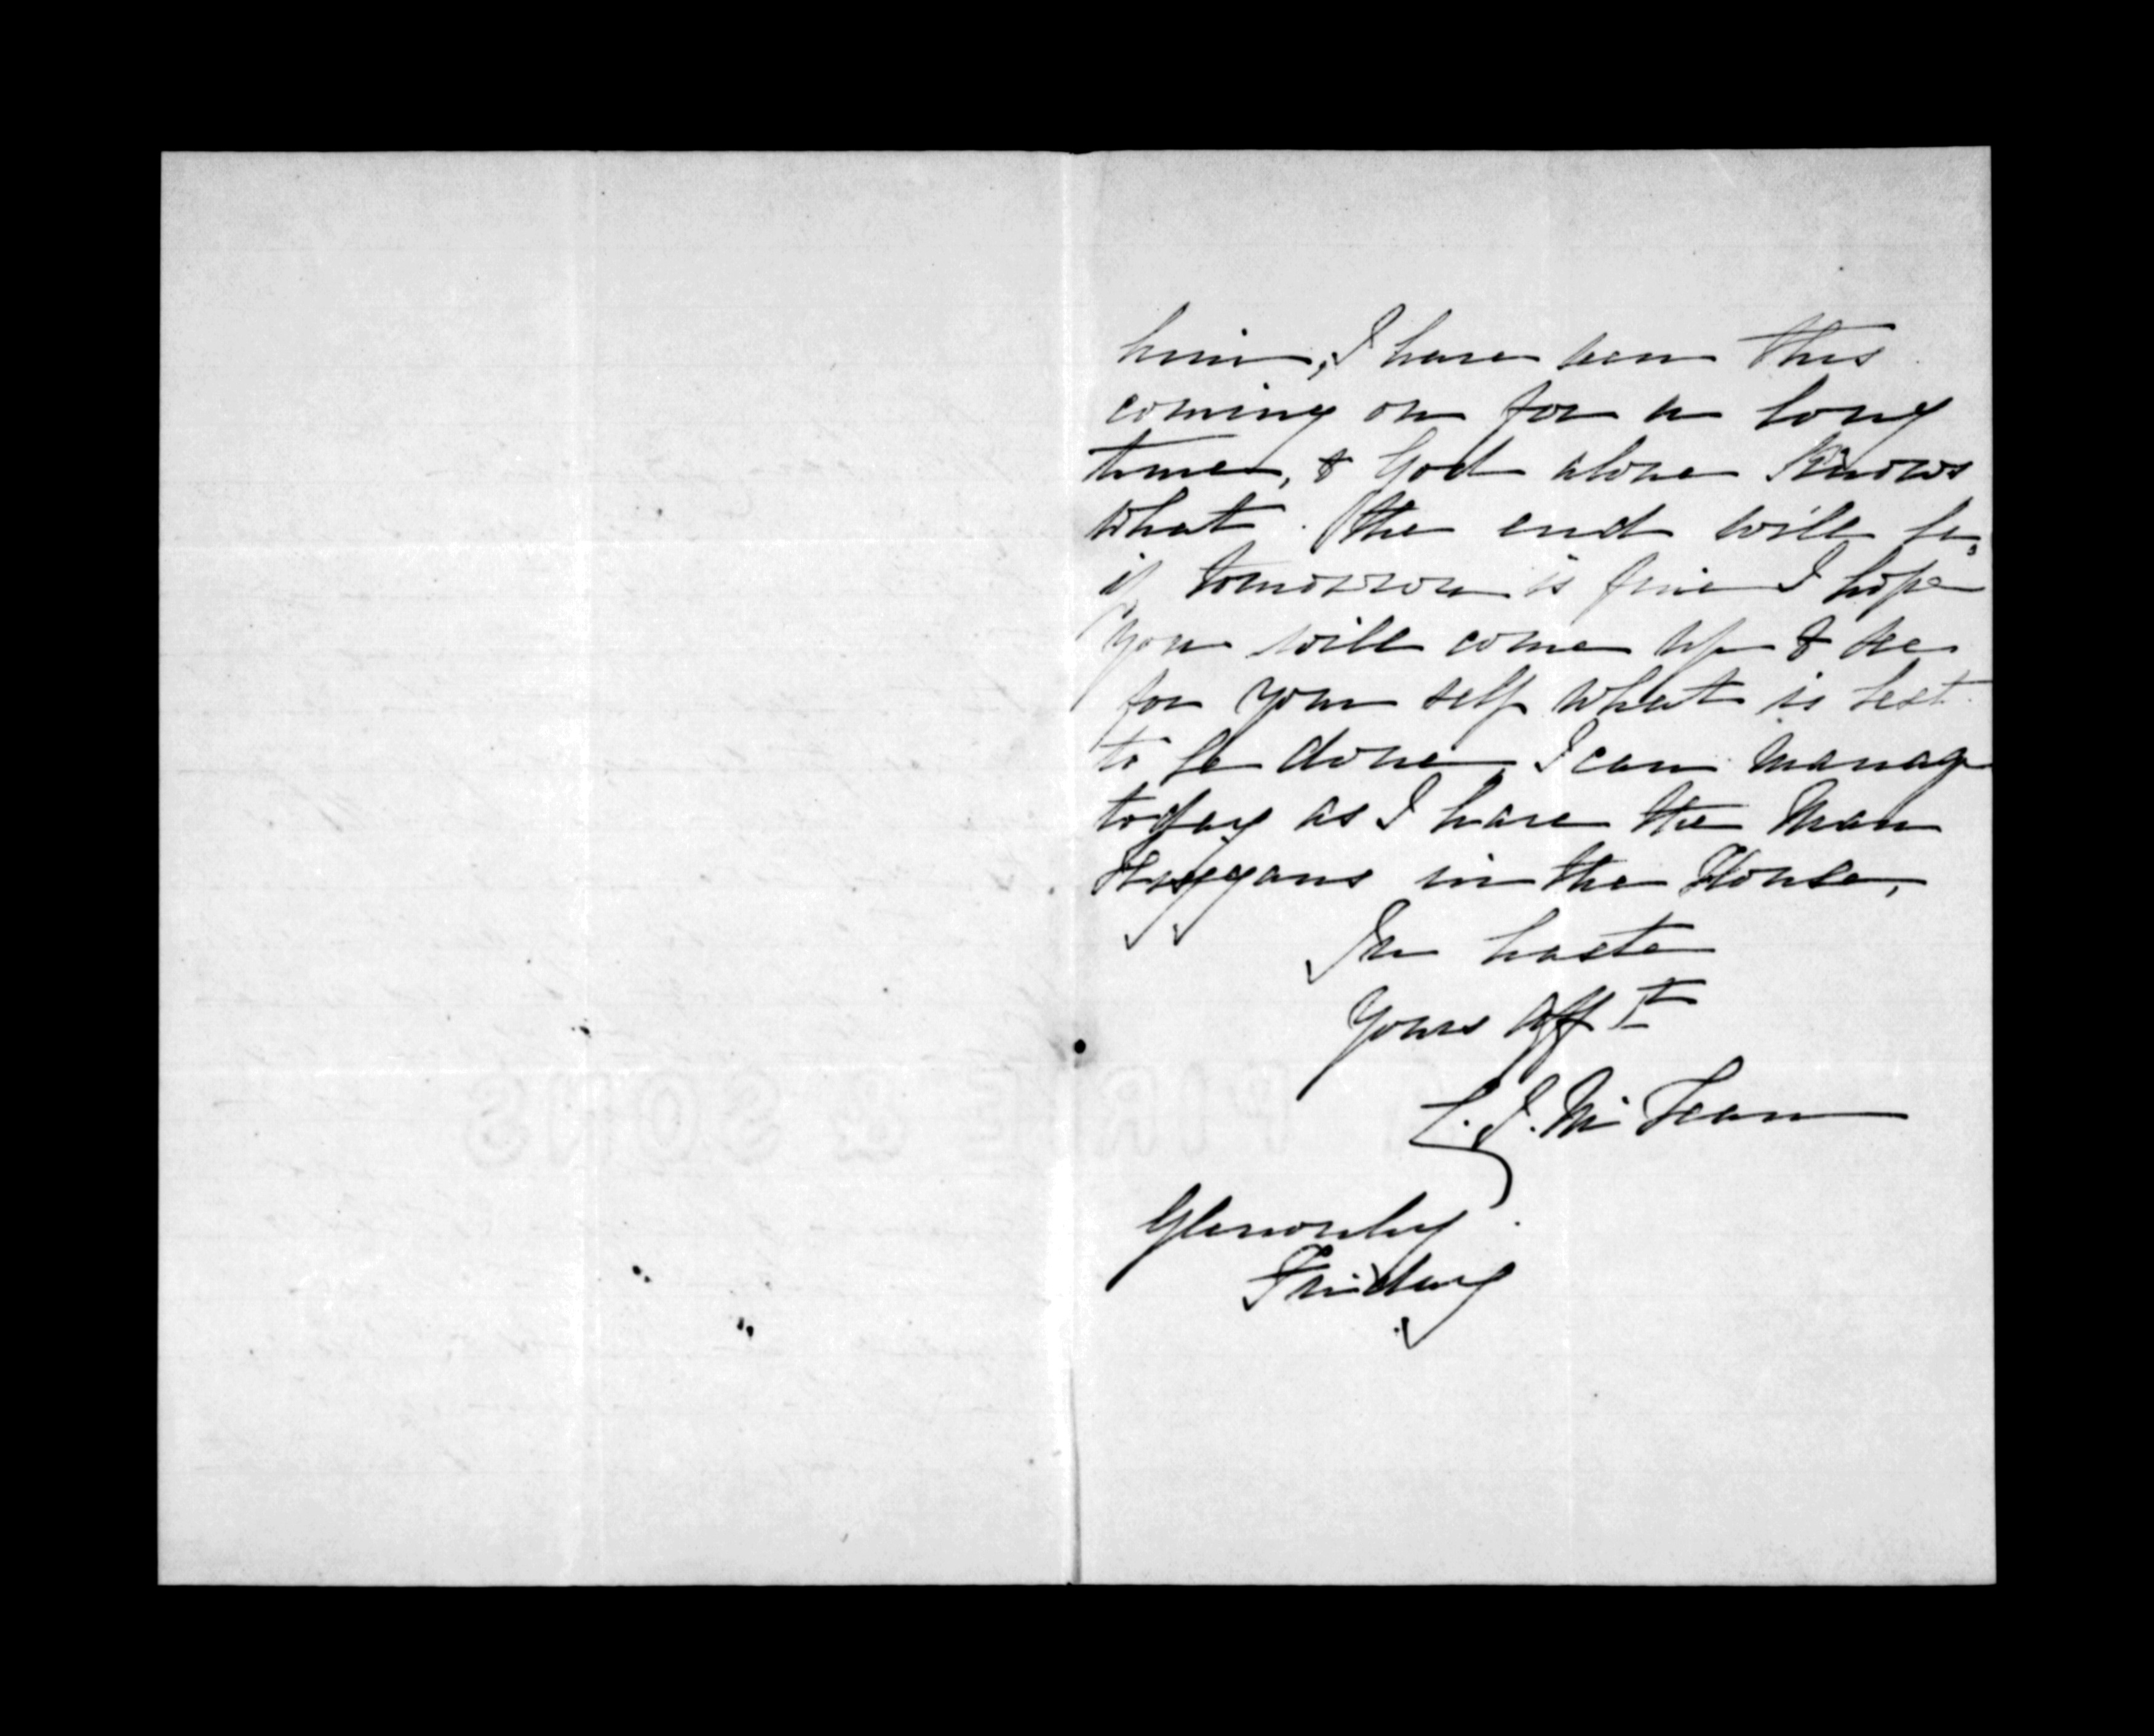 him, I have seen this
coming on for a long
time, & God alone Knows
what the end will be,
if tomorrow is fine I hope
you will come up & see
for your self what is best
to be done, I can manage
today as I have the Man
in the House,
In haste
Yours afft
Glenorchy
Friday
PIRIE & SONS